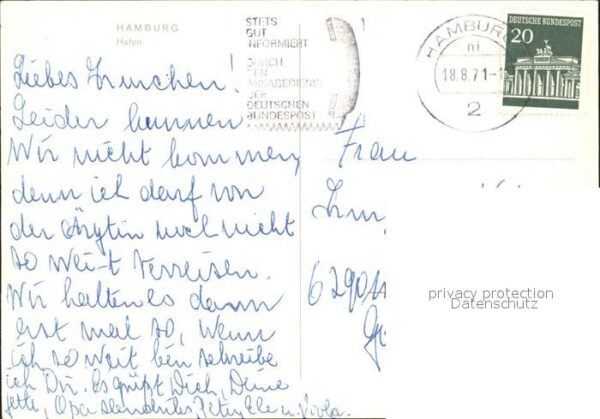 HAMBURG
Hafen
STETS
GUT
INFORMIERT
DURCH
DEN
ANSAGEDIENST
DER
DEUTSCHEN
BUNDESPOST
HAMBURG
18.8.71-1
2
DEUTSCHE BUNDESPOST
20
Liebes Irmchen!
Leider kannen
Wir nicht kommen,
denn ich darf von
der Ärztin noch nicht
so weit verreisen.
Wir halten es dann
erst mal so, Wenn
ich so weit bin schreibe
ich Dir. Es grüßt Dich, Deine
Opa
Frau
Irm
6290
privacy protection
Datenschutz